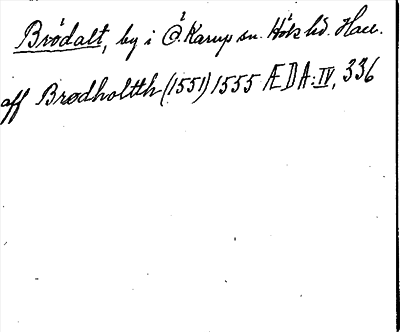 Brödalt, by i Ö. Karup sn. Hök hd. Hall.
aff Brødholtth (1551) 1555 ÆDA: IV, 336